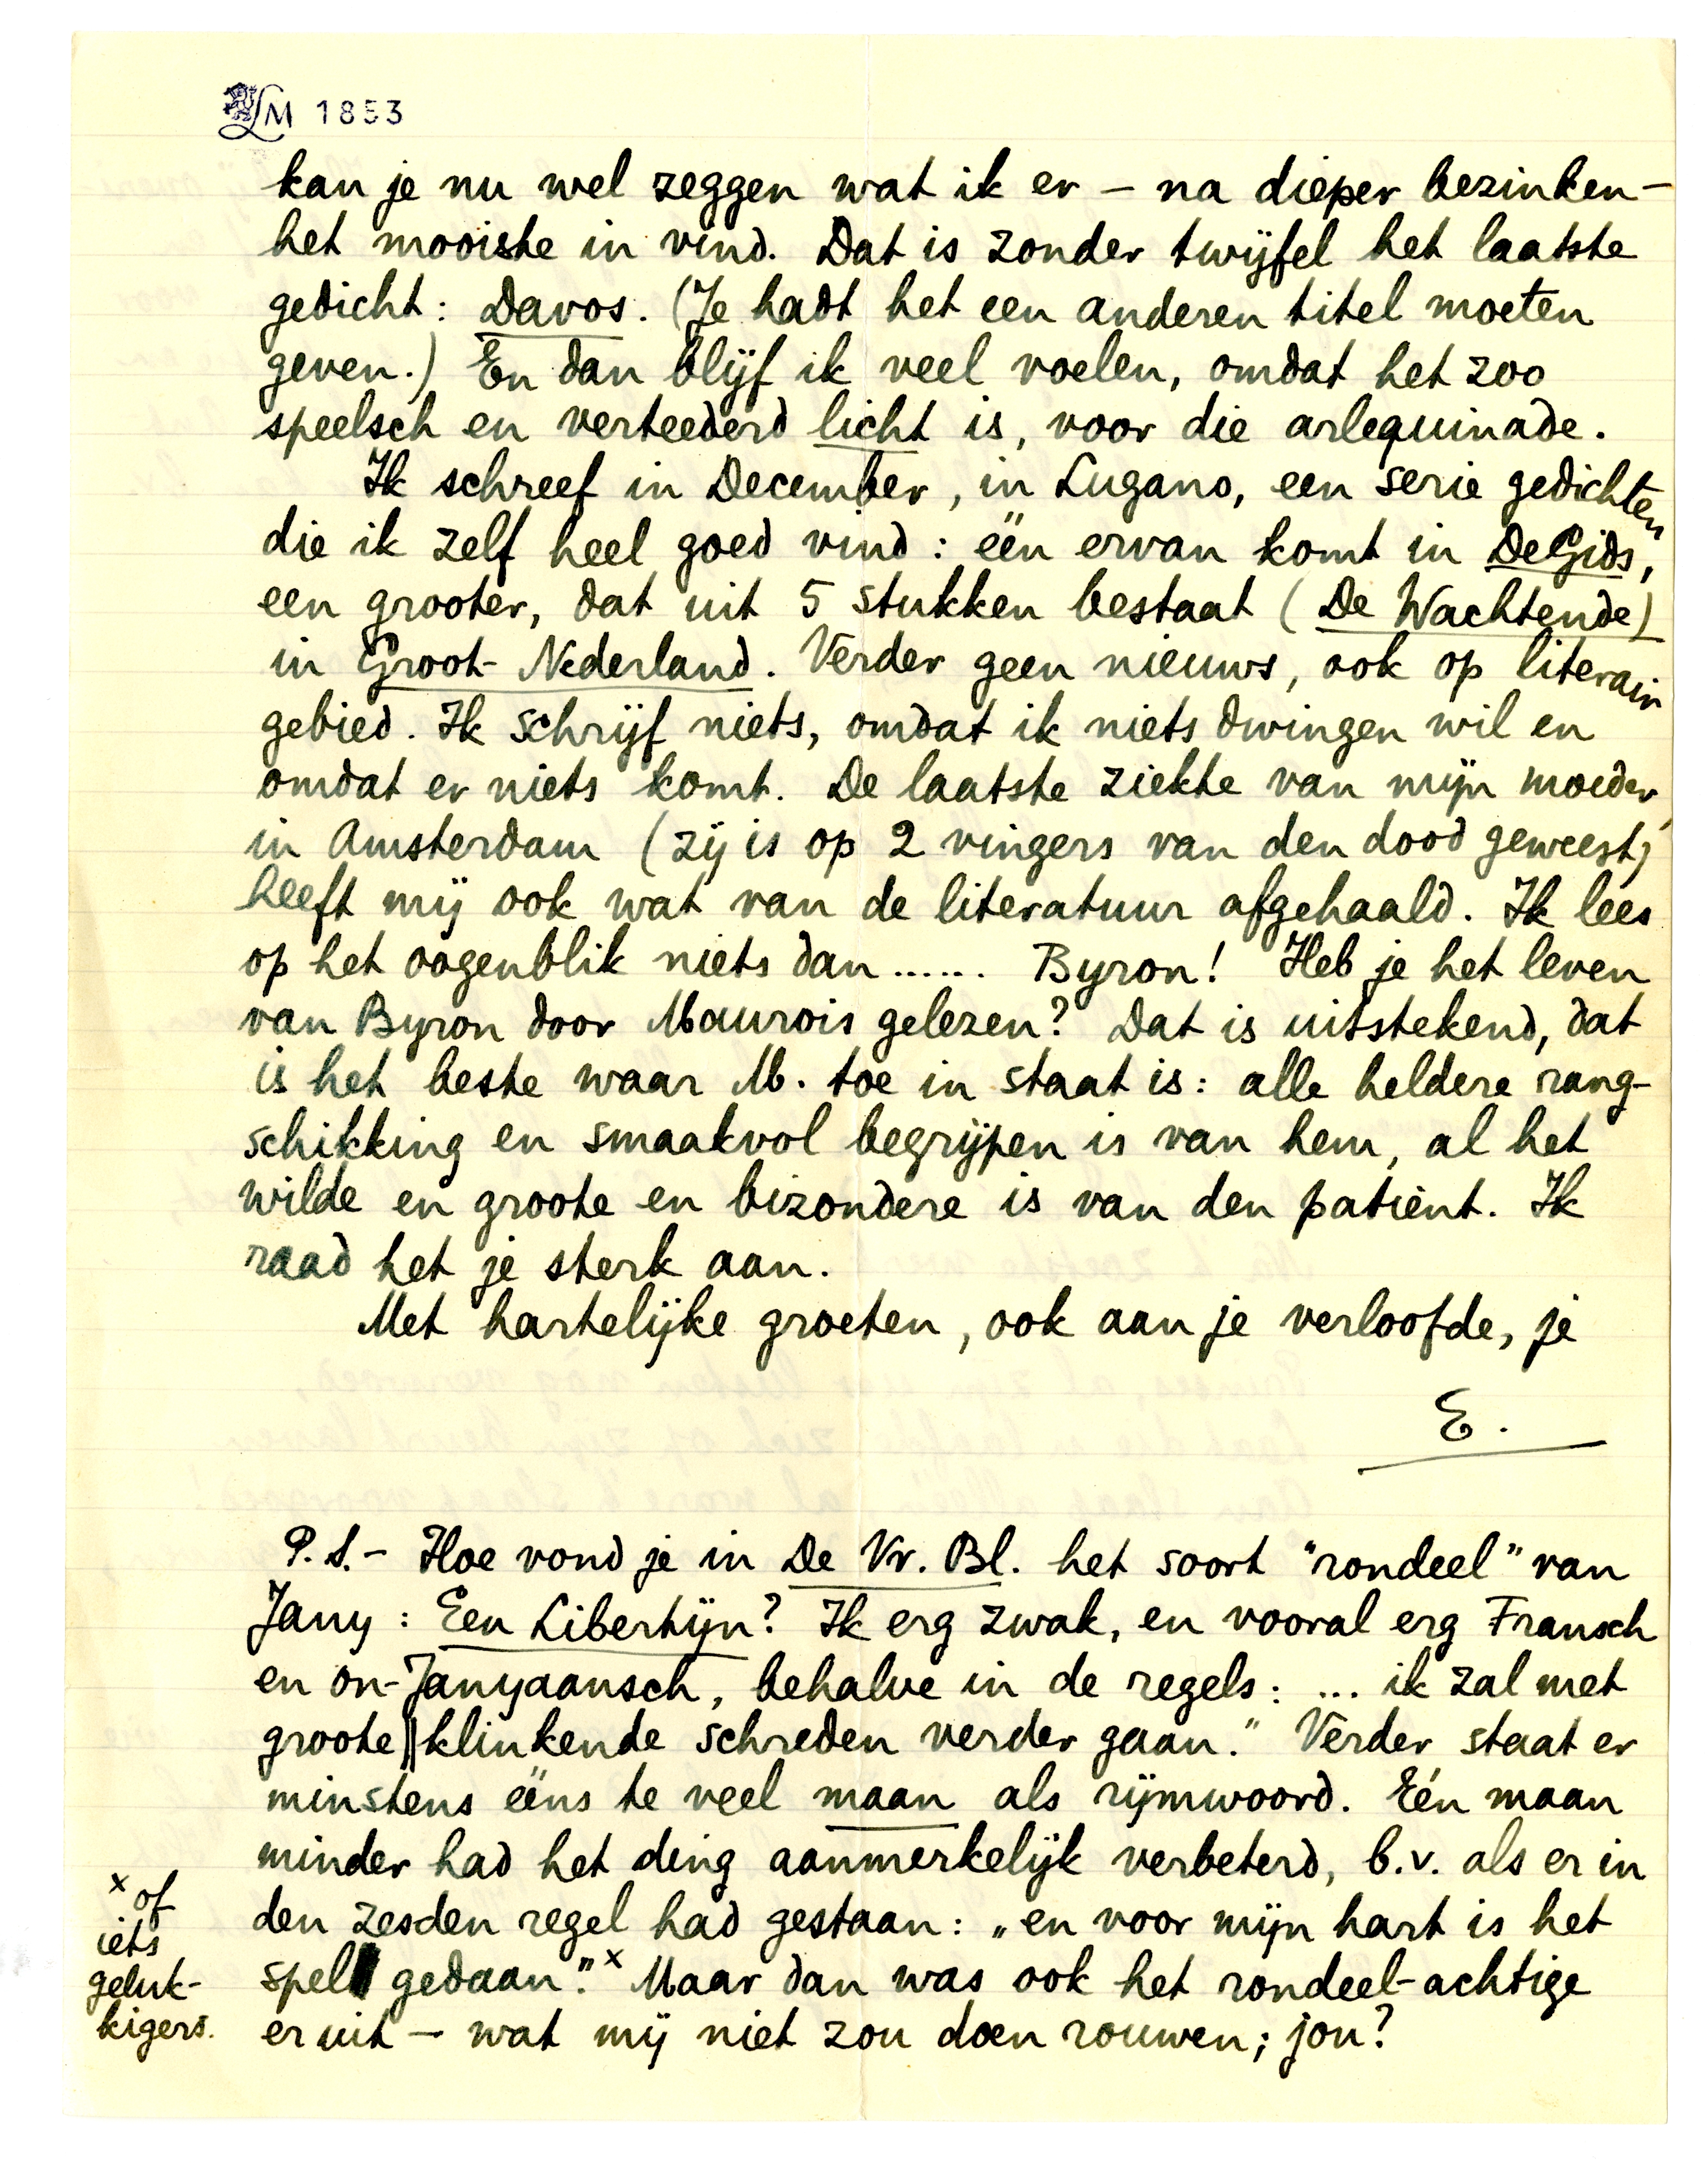 LM 1853
kan je nu wel zeggen wat ik er – na dieper bezinken –
het mooiste in vind. Dat is zonder twijfel het laatste
gedicht: Davos. (Je hadt het een anderen titel moeten
geven.) En dan blijf ik veel voelen, omdat het zoo
speelsch en verteederd licht is, voor die arlequinade.
Ik schreef in December, in Lugano, een serie gedichten
die ik zelf heel goed vind: één ervan komt in De Gids,
een grooter, dat uit 5 stukken bestaat (De Wachtende)
in Groot-Nederland. Verder geen nieuws, ook op literair
gebied. Ik schrijf niets, omdat ik niets dwingen wil en
omdat er niets komt. De laatste ziekte van mijn moeder,
in Amsterdam (zij is op 2 vingers van den dood geweest)
heeft mij ook wat van de literatuur afgehaald. Ik lees
op het oogenblik niets dan ...... Byron! Heb je het leven
van Byron door Maurois gelezen? Dat is uitstekend, dat
is het beste waar M. toe in staat is: alle heldere rang-
schikking en smaakvol begrijpen is van hem, al het
wilde en groote en bizondere is van den patient. Ik
raad het je sterk aan.
Met hartelijke groeten, ook aan je verloofde, je
E.
P.S. – Hoe vond je in De Vr. Bl. het soort "rondeel" van
Jany: Een Libertijn? Ik erg zwak, en vooral erg Fransch
en on-Janyaansch, behalve in de regels: ... ik zal met
groote || klinkende schreden verder gaan." Verder staat er
minstens ééns te veel maan als rijmwoord. Eén maan
minder had het ding aanmerkelijk verbeterd, b.v. als er in
den zesden regel had gestaan: „en voor mijn hart is het
spel gedaan."x Maar dan was ook het rondeel-achtige
er uit – wat mij niet zou doen rouwen; jou?
x of
iets
geluk-
kigers.